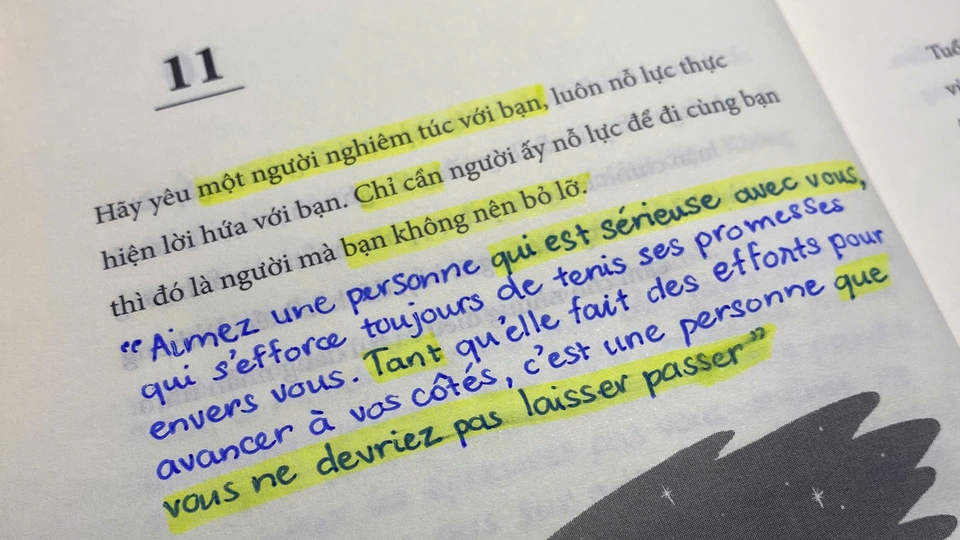 11
Hãy yêu một người nghiêm túc với bạn, luôn nỗ lực thực
hiện lời hứa với bạn. Chỉ cần người ấy nỗ lực để đi cùng bạn
thì đó là người mà bạn không nên bỏ lỡ.
"Aimez une personne qui est sérieuse avec vous,
qui s'efforce toujours de tenis ses promesses
envers vous. Tant qu'elle fait des efforts pour
avancer à vos côtés, c'est une personne que
vous ne devriez pas laisser passer"